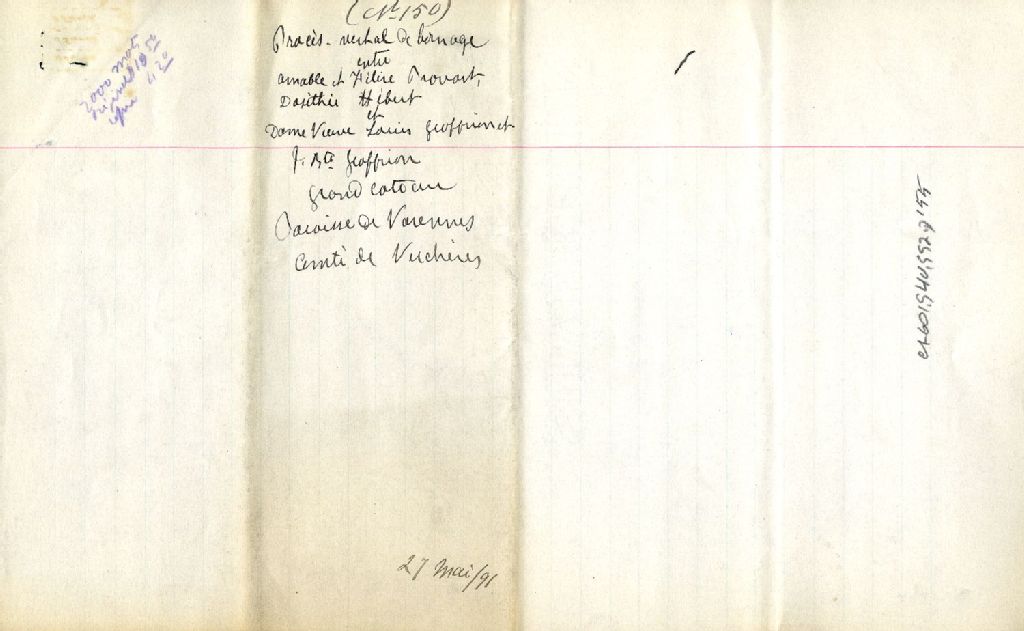 (No 150)
Procès-verbal de bornage
entre
Amable et Félire Provost,
Dosithée Hébert
et
Dame Veuve Louis Geoffrion et
J. Bte Geoffrion
Grand coteau
Paroisse de Varennes
Comté de Verchères
27 Mai/91